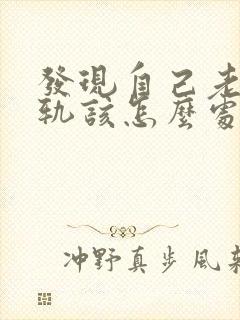 發現自己老
軌該怎麼處
冲野真步風